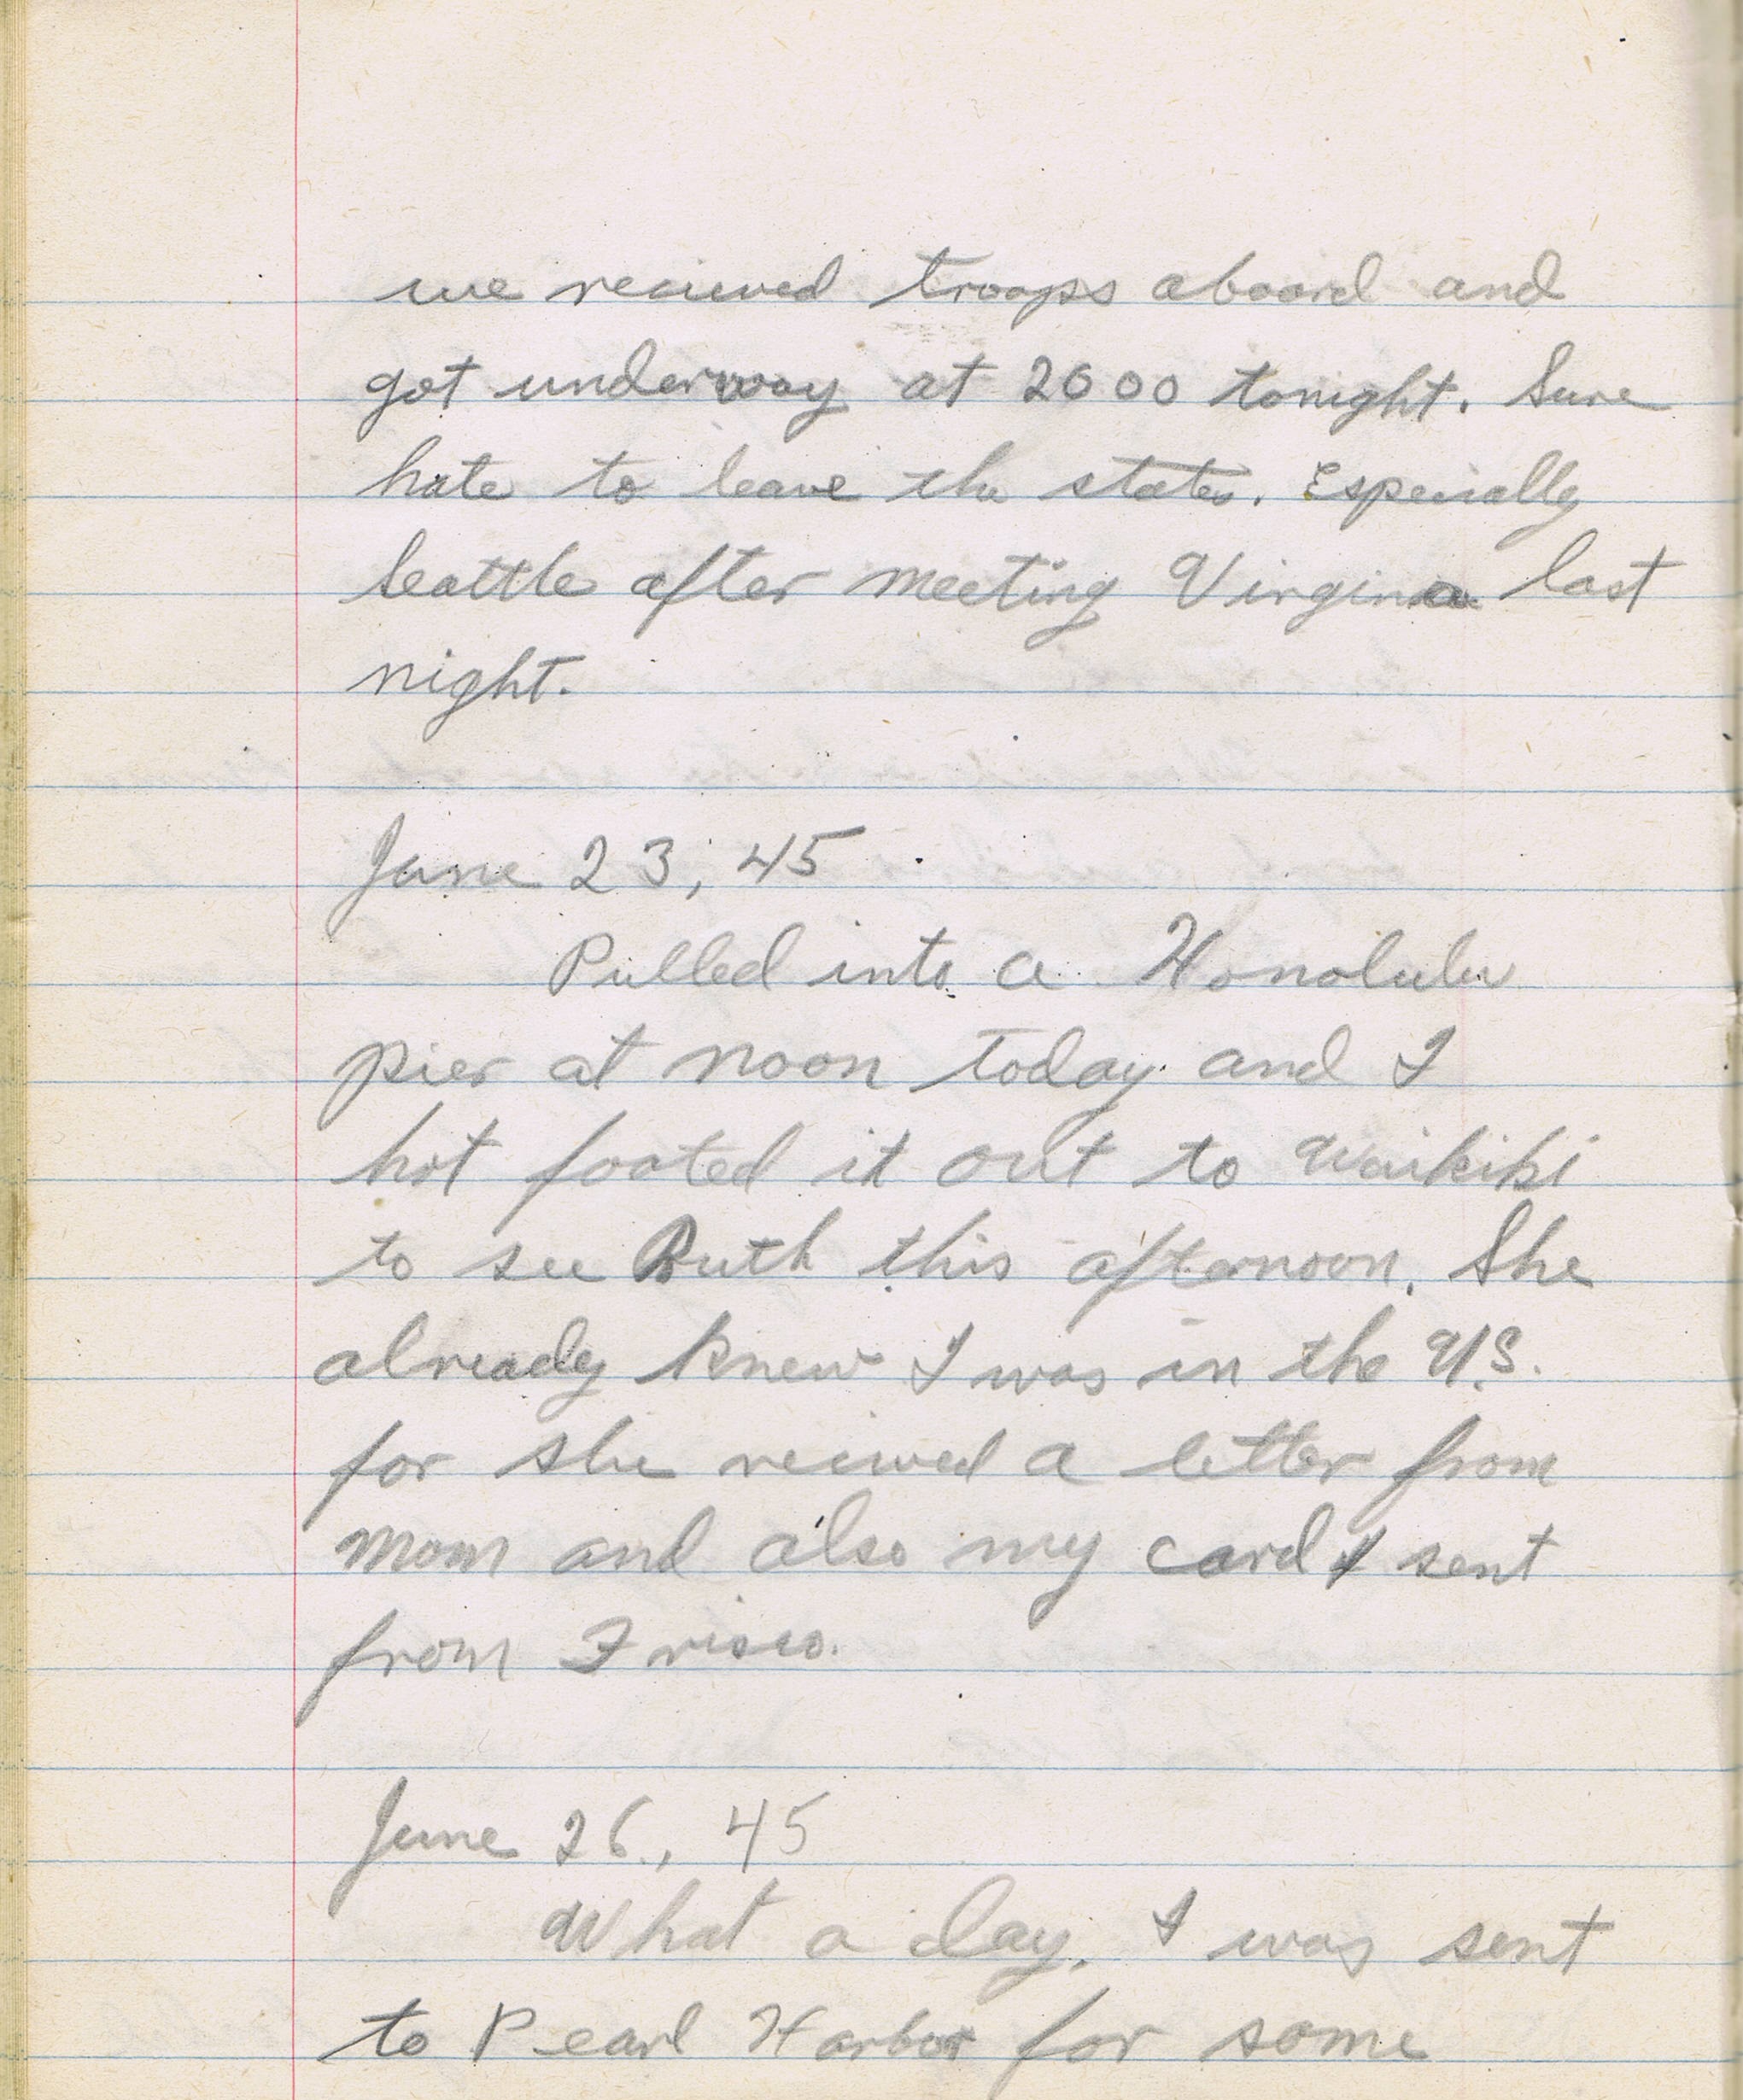 we recieved troops aboard and
got underway at 2000 tonight. Sure
hate to leave the states. Especially
Seattle after meeting Virgina last
night.
June 23, 45
Pulled into a Honolulu
pier at noon today and I
hot footed it out to Waikiki
to see Ruth this afternoon. She
already knew I was in the U.S.
for she recieved a letter from
Mom and also my card I sent
from Frisco.
June 26, 45
What a day. I was sent
to Pearl Harbor for some